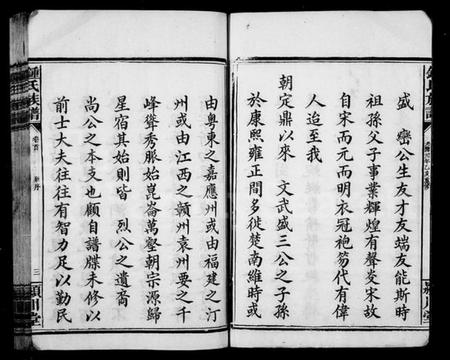 盛　巒公生友才友瑞友能斯時
祖孫父子事業輝煌有聲炎宋故
自宋而元而明衣冠袍笏代有偉
人迨至我
朝定鼎以來　文武盛三公之子孫
於康熙雍正間多徙楚南維時或
由粵東之嘉應州或由福建之汀
州或由江西之贛州袁州要之千
峰聳秀脈始崑崙萬壑朝宗源歸
星宿其始則皆　烈公之遺裔
尚公之本支也顧自譜牒未修以
前士大夫往往有智力足以勤民
鍾氏族譜
卷首
三
潁川堂